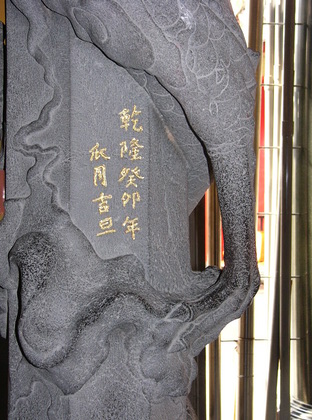 乾隆癸卯年
月吉旦